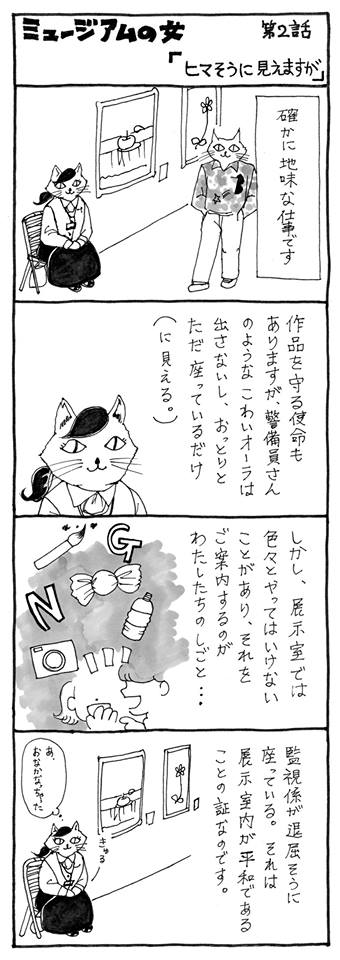 ミュージアムの女
第2話
「ヒマそうに見えますが」
確かに地味な仕事です
作品を守る使命も
ありますが、警備員さん
のようなこわいオーラは
出さないし、おっとりと
ただ座っているだけ
(に見える。)
しかし、展示室では
色々とやってはいけない
ことがあり、それを
ご案内するのが
わたしたちのしごと・・・
NG
監視係が退屈そうに
座っている。それは
展示室内が平和である
ことの証なのです。
あ、
おなかなっちゃった
きゅる